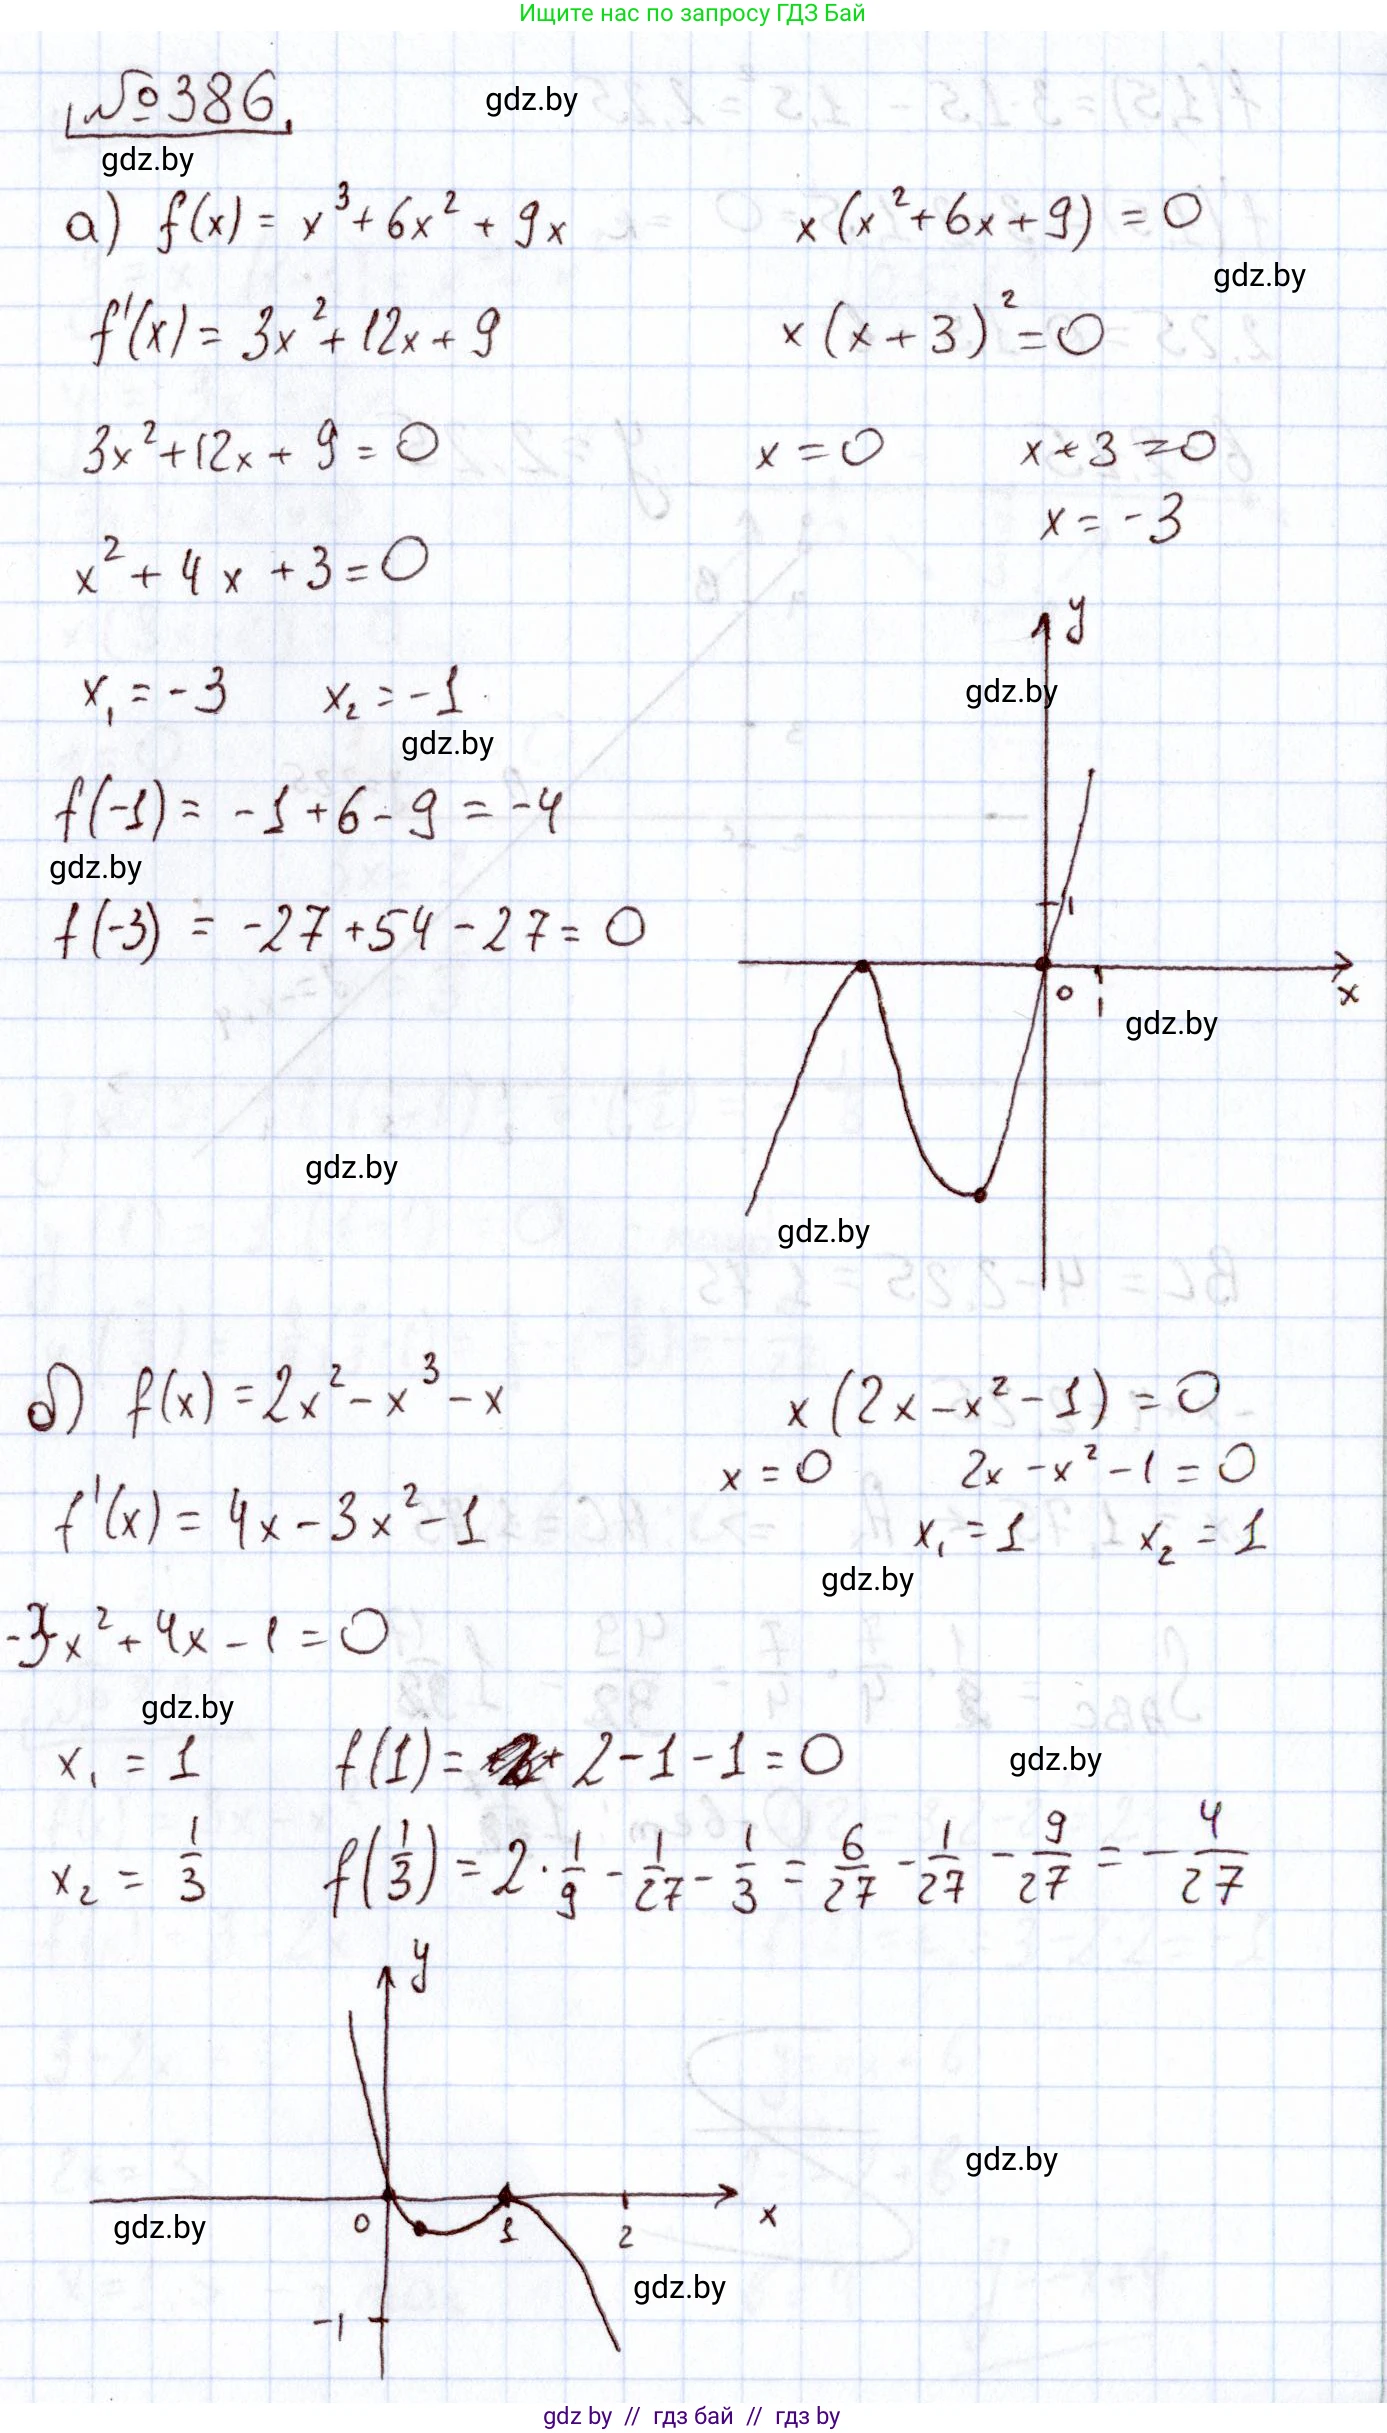 Ищите нас по запросу ГДЗ Бай
№386
gdz.by
gdz.by
а) f(x) = x³ + 6x² + 9x
x(x² + 6x + 9) = 0
gdz.by
f'(x) = 3x² + 12x + 9
x(x + 3)² = 0
3x² + 12x + 9 = 0
x = 0 x + 3 = 0
x = -3
x² + 4x + 3 = 0
x₁ = -3 x₂ = -1
gdz.by
f(-1) = -1 + 6 - 9 = -4
gdz.by
f(-3) = -27 + 54 - 27 = 0
y
gdz.by
1
0
1
x
gdz.by
gdz.by
gdz.by
б) f(x) = 2x² - x³ - x
x(2x - x² - 1) = 0
x = 0 2x - x² - 1 = 0
f'(x) = 4x - 3x² - 1
x₁ = 1 x₂ = 1
gdz.by
-3x² + 4x - 1 = 0
gdz.by
x₁ = 1 f(1) = 2 - 1 - 1 = 0
gdz.by
x₂ = 1/3 f(1/3) = 2 · 1/9 - 1/27 - 1/3 = 6/27 - 1/27 - 9/27 = - 4/27
y
gdz.by
0 1 2 x
gdz.by
gdz.by
-1
gdz by // гдз бай // гдз by